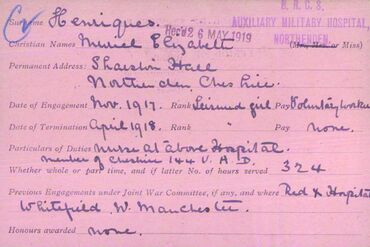 B. R. C. S.
AUXILIARY MILITARY HOSPITAL,
NORTHENDEN.
Surname Henriques.
Rec'd 26 MAY 1919
Christian Names Muriel Elizabeth (Mrs. or Miss)
Permanent Address: Sharston Hall
Northenden, Cheshire.
Date of Engagement Nov. 1917. Rank Pay Voluntary worker
Date of Termination April 1918. Rank " Pay none.
Particulars of Duties nurse at above Hospital.
member of Cheshire 144 V. A. D.
Whether whole or part time, and if latter No. of hours served 324
Previous Engagements under Joint War Committee, if any, and where Red X Hospital
Whitefield, Nr. Manchester.
Honours awarded none.